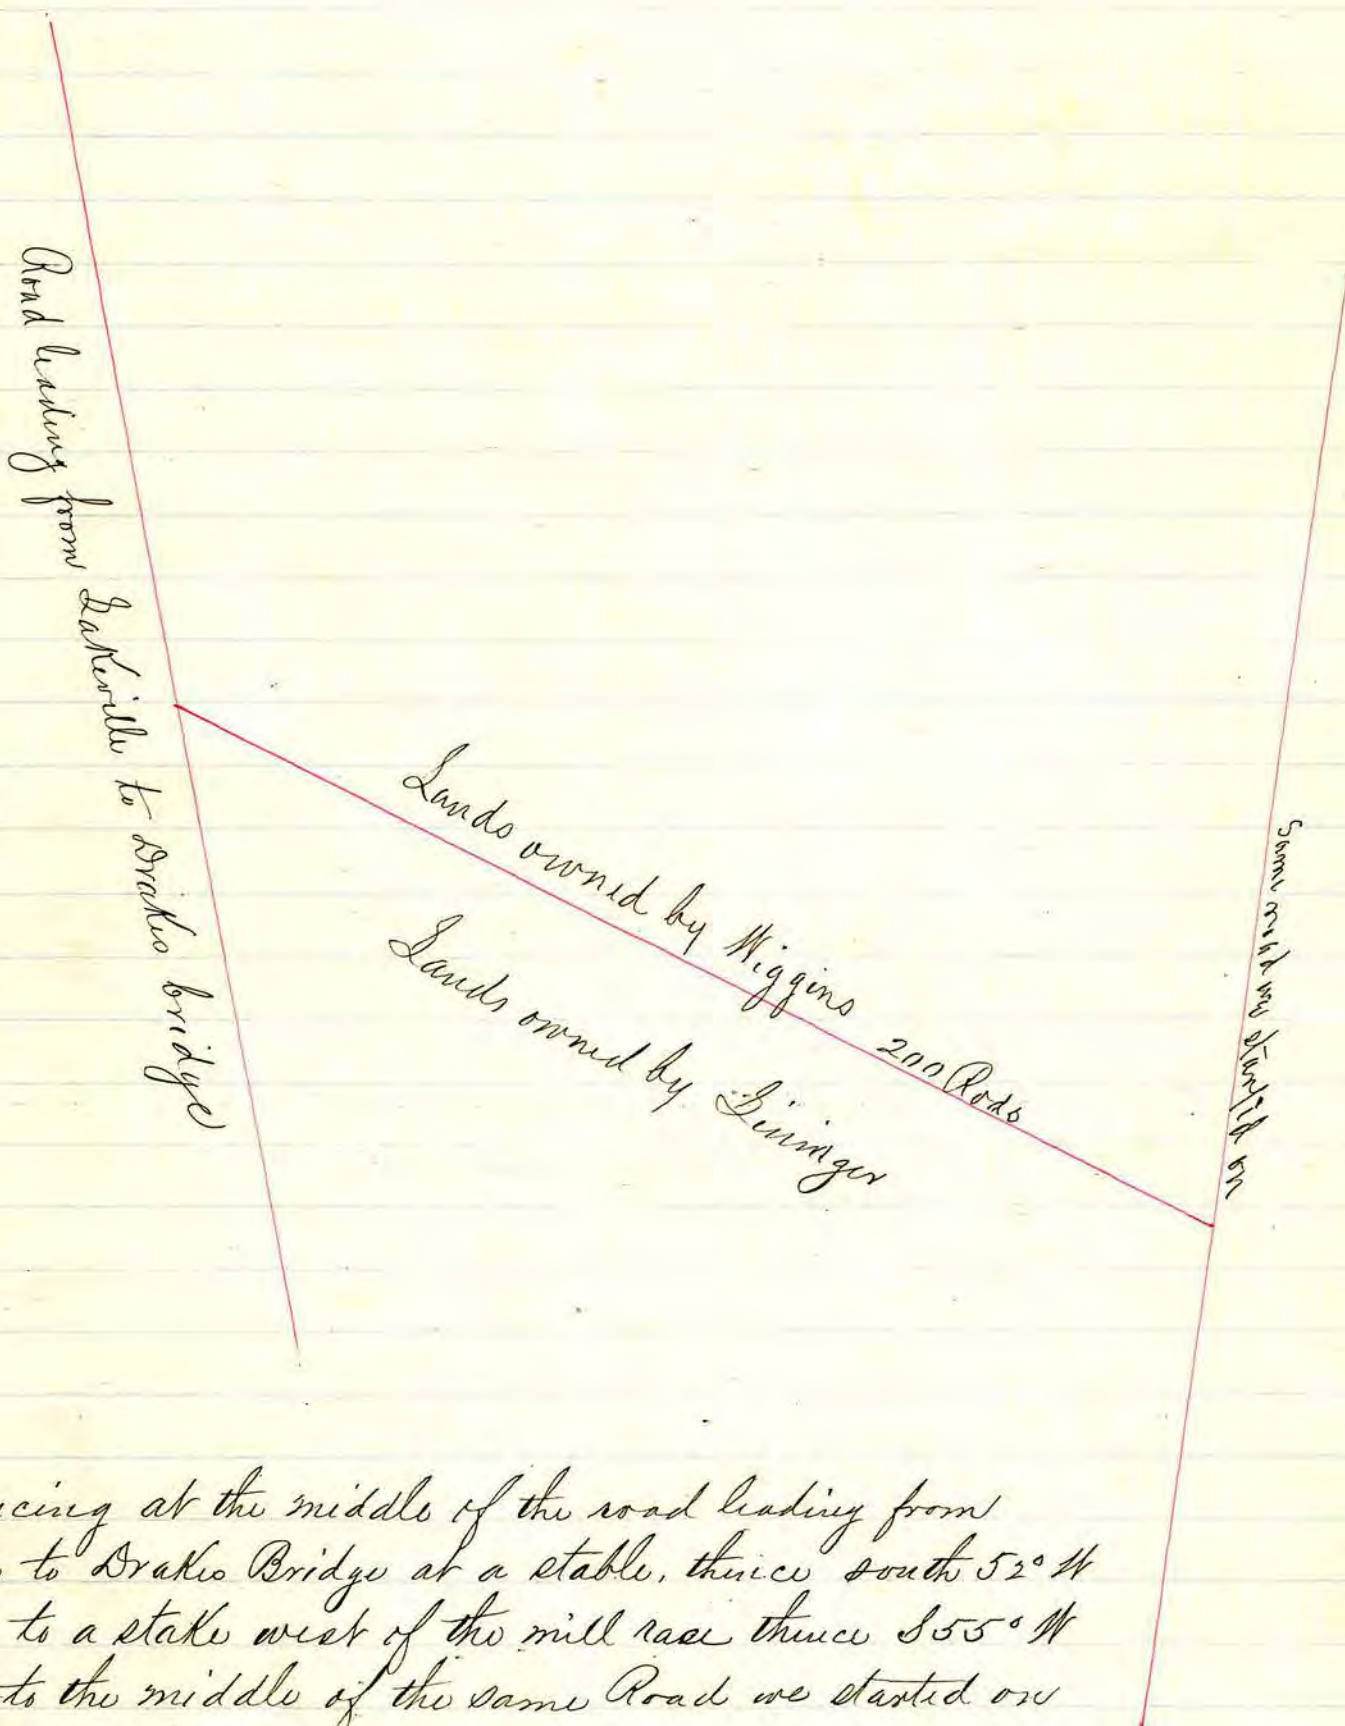 Road leading from Lakeville to Drakes bridge
Lands owned by Wiggins
200 Rods
Lands owned by
Same road we started on
cing at the middle of the road leading from
to Drakes Bridge at a stable, thence south 52° W
to a stake west of the mill race thence S55° W
to the middle of the same Road we started on